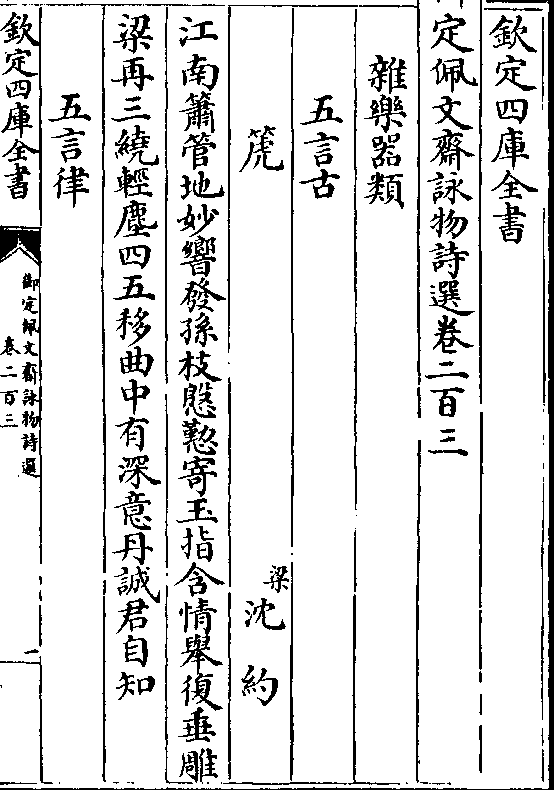 欽定四庫全書
定佩文齋詠物詩選卷二百三
雜樂器類
五言古
箎　梁沈約
江南簫管地妙響發孫枝慇懃寄玉指含情舉復垂雕
梁再三繞輕塵四五移曲中有深意丹誠君自知
五言律
欽定四庫全書
御定佩文齋詠物詩選
卷二百三
一